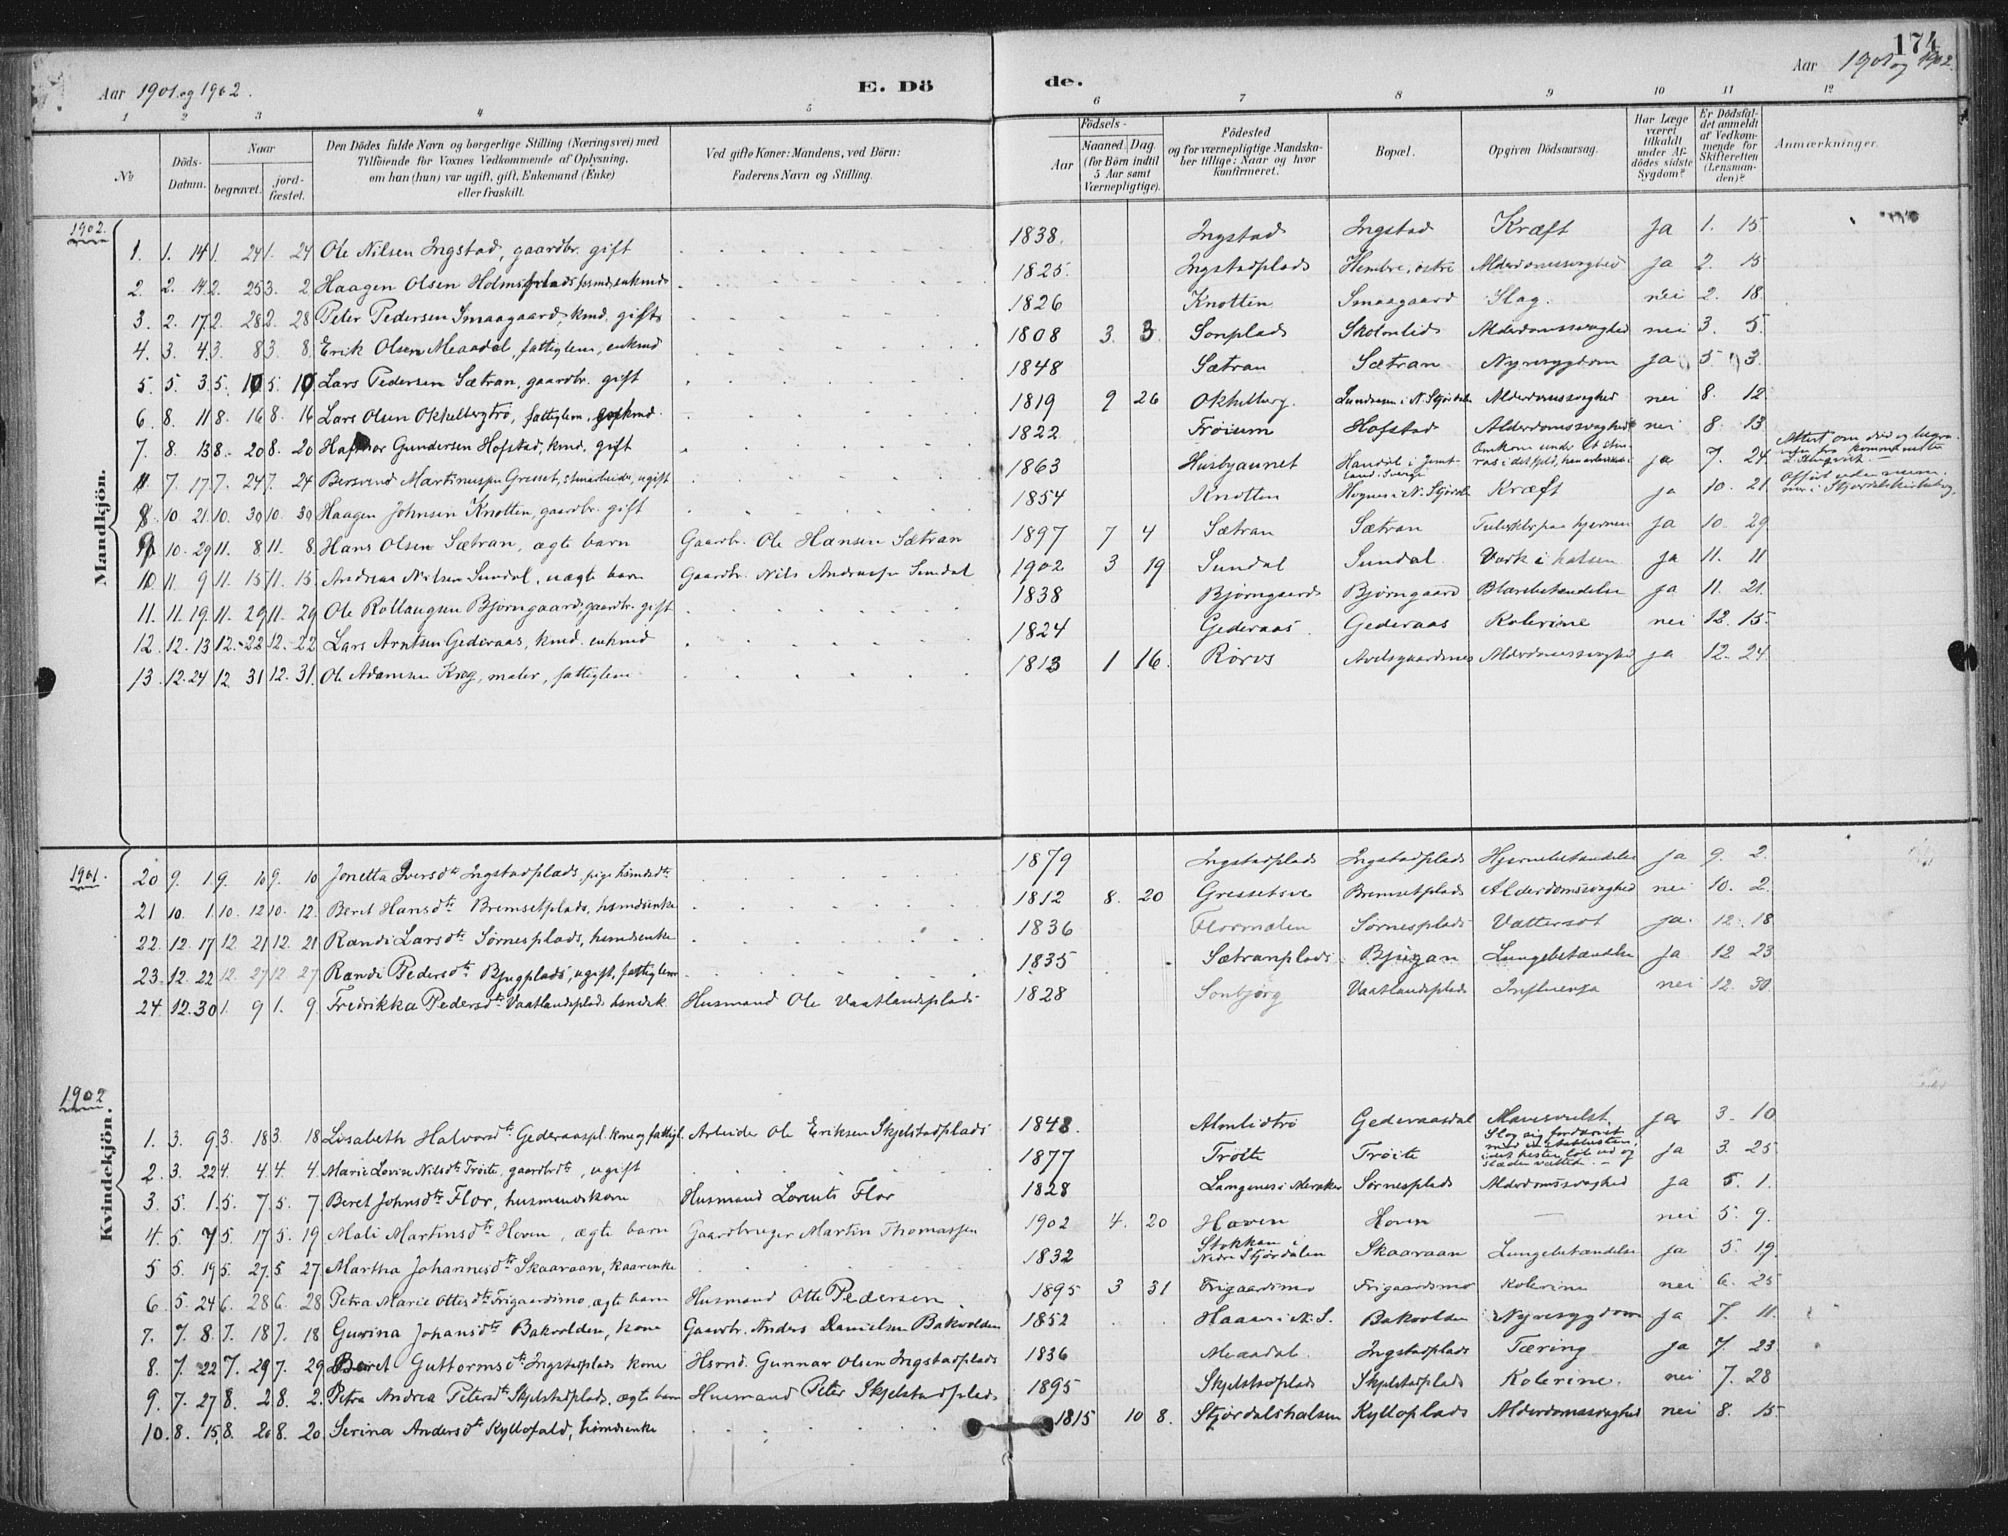 174
Aar 1901 og 1902.
E. Dö
de.
Aar 1901 og 1902.
1 2 3 4 5 6 7 8 9 10 11 12
No
Döds-Datum.
Naar
begravet.
jord-fæstet.
Den Dödes fulde Navn og borgerlige Stilling (Næringsvei) med
Tilföiende for Voxnes Vedkommende af Oplysning,
om han (hun) var ugift, gift, Enkemand (Enke)
eller fraskilt.
Ved gifte Koner: Mandens, ved Börn:
Faderens Navn og Stilling.
Födsels-
Aar
Maaned. Dag.
(for Börn indtil
5 Aar samt
Værnepligtige).
Födested
og for værnepligtige Mandska-
ber tillige: Naar og hvor
konfirmeret.
Bopæl.
Opgiven Dödsaarsag.
Har Læge
været
tilkaldt
under Af-
dödes sidste
Sygdom?
Er Dödsfal-
det anmeldt
af Vedkom-
mende for
Skifteretten
(Lensman-
den)?
Anmærkninger.
Mandkjön.
1902.
1. 1. 14 1. 24 1. 24 Ole Nilsen Ingstad, gaardbr. gift 1838. Ingstad Ingstad Kræft ja 1. 15
2. 2. 14 2. 25 3. 2 Haagen Olsen Holmsplads hsmd, enkmd 1825. Ingstadplads Hembre, östre Alderdomssvaghed ja 2. 15
3. 2. 17 2. 28 2. 28 Peter Pedersen Smaagaard, kmd. gift 1826 Knotten Smaagaard Slag. nei 2. 18
4. 3. 4 3. 8 3. 8. Erik Olsen Meaadal, fattiglem, enkmd 1808 3. 3. Sonplads Skolmlid Alderdomssvaghed nei 3. 5.
5. 5. 3 5. 10 5. 10 Lars Pedersen Sætran, gaardbr. gift 1848 Sætran Sætran Nyresygdom ja 5 3.
6. 8. 11 8. 16 8. 16 Lars Olsen Okkelbergtrö, fattiglem, 1819 9 26 Okkelberg. i N. Stjørdalen Alderdomssvaghed nei 8. 12
7. 8. 13 8. 20 8. 20 Gundersen Hofstad, kmd. gift 1822 Trøiem Hofstad Alderdomssvaghed nei 8. 13
7. 17 7. 24 7. 24 Bersvend Martinussen Gresset, ugift 1863 Husbyaunet Handøl i Jemt-
land. Sverige
Omkom under et sten-
ras i det fjeld, han arbeidede i ja 7. 24
Attest om død og begra-
velse fra
8. 10. 21 10. 30 10. 30 Haagen Johnsen Knotten, gaardbr. gift 1854 Knotten Hognes i N. Stjørdalen Kræft ja 10. 21
9. 10. 29 11. 8 11. 8. Hans Olsen Sætran, ægte barn Gaardbr. Ole Hansen Sætran 1897 7 4 Sætran Sætran Tuberkler paa hjernen ja 10. 29
10. 11. 9 11. 15 11. 15. Andreas Nilsen Sundal, uægte barn Gaardbr. Nils Andreassen Sundal 1902 3 19 Sundal Sundal. Værk i halsen ja 11. 11
11. 11. 19. 11. 29 11. 29 Ole Rollaugsen Bjørngaard, gaardbr. gift 1838 Bjørngaard Bjørngaard Blærebetændelse ja 11. 21.
12. 12. 13 12. 22 12. 22 Lars Arntsen Gederaas, kmd. enkmd 1824 Gederaas. Gederaas Kolerine nei 12. 15.
13. 12. 24 12. 31 12. 31. Ole Adamsen Krog, maler, fattiglem 1813 1 16. Röros Avelsgaardsnes Alderdomssvaghed ja 12. 24.
Kvindekjön.
1901.
20 9. 1. 9. 10 9. 10 Jonetta Iversdtr Ingstadplads, pige hsmdsdtr 1879 Ingstadplads Ingstadplads Hjernebetændelse ja 9. 2.
21 10. 1. 10. 12 10. 12. Beret Hansdtr Bremsetplads, hsmdsenke 1812 8. 20 Gressetsve Bremsetplads Alderdomssvaghed nei 10. 2.
22. 12. 17 12. 21 12. 21 Randi Larsdtr Sørnesplads, hsmdsenke 1836 Flormælen Sørnesplads Vattersot ja. 12. 18
23. 12. 22 12. 27 12. 27 Randi Pedersdtr Bjugplads, ugift, fattiglem 1835 Sætranplads Bjugan Lungebetændelse ja 12. 23
24. 12. 30 1. 9 1. 9 Fredrikka Pedersdtr Vaatlandsplads Husmand Ole Vaatlandsplads 1828 Sonbjørg Vaatlandsplads Influenza nei 12. 30.
1902
1. 3. 9. 3. 18 3. 18 Lisabeth Halvorsdtr Gederaaspl. kone og fattigl. Arbeider Ole Eriksen Skjelstadplads 1848. Almlidtrö Gederaasdal Mavesvulst. ja 3. 10
2. 3. 22 4. 4 4. 4. Marie Lovise Nilsdtr Trøite, gaardbrdtr, ugift 1877 Trøite Trøite Slog sig fordærvet
slæden væltet. ja 3. 25
3. 5. 1. 5. 7 5. 7 Beret Johnsdtr Flor, husmandskone Husmand Lorents Flor 1828 Langenes i Meraker Sørnesplads Alderdomssvaghed ja 5. 1.
4. 5. 7 5. 17 5. 19 Mali Martinsdtr Hoven, ægte barn Gaardbruger Martin Thomassen 1902 4. 20 Hoven Hoven — nei 5. 9.
5 5. 19 5. 27 5. 27 Martha Johannesdtr Skaaraan, kaarenke 1832 Stokkan i
Nedre Stjørdalen Skaaraan Lungebetændelse ja 5. 19.
6. 5. 24 6. 28 6. 28 Petra Marie Ottesdtr Frigaardsmo, ægte barn Husmand Otte Pedersen 1895 3 31 Frigaardsmo Frigaardsmo Kolerine nei 6. 25
7. 7. 8. 7. 18 7. 18 Gurina Johansdtr Bakvolden, kone Gaardbr. Anders Danielsen Bakvolden 1852 Haaur i N. S. Bakvolden Nyresygdom ja 7. 11.
8. 7. 22 7. 29 7. 29 Beret Guttormsdtr Ingstadplads kone Hsmd. Gunnar Olsen Ingstadplads 1836 Meaadal. Ingstadplads Tæring ja 7. 23.
9. 7. 27 8. 2 8. 2. Petra Andrea Petersdtr Skjelstadplads, ægte barn Husmand Peter Skjelstadplads 1895 Skjelstadplads Skjelstadplads Kolerine. nei 7. 28
10. 8. 15. 8. 20 8. 20 Serina Andersdtr Kyllofald, hsmdsenke 1815 10 8. Stjørdalshalsen Kylloplads Alderdomssvaghed nei 8. 15.